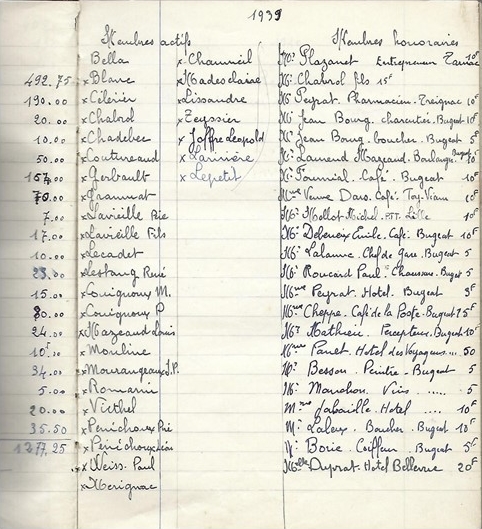 1939
Membres actifs
Membres honoraires
Bella
492.75 x Blanc
190.00 x Célérier
20.00 x Chabrol
10.00 x Chadebec
50.00 x Coutureaud
157.00 x Gerbault
70.00 x Grammat
7.00 x Laveille Pie
17.00 x Laveille Fils
10.00 x Lecadet
23.00 x Lestang René
15.00 x Couignoux M.
80.00 x Couignoux P
24.00 x Mazeaud Louis
10f.00 x Mouline
34.00 x Mourangeaux J.P.
5.00 x Romain
20.00 x Viethel
35.50 x Périchoux
1277.25 x Périchoux
x Weiss Paul
x Merignac
x Chaumeil
x Madesclaire
x Lissandre
x Teyssier
x Joffre Leopold
x Larivière
x Lepetit
Mr Plazanet Entrepreneur Tarnac 10f
Mr Chabrol fils 15f
Mr Peyrat. Pharmacien. Treignac 10f
Mr Jean Bourg. charcutier. Bugeat 10f
Mr Jean Bourg. boucher. Bugeat 5f
Mr Laurend Mazeaud. Boulanger Bugeat 20
Mr Fournial. Café. Bugeat 10f
Mme Veuve Dars. Café. Toy-Viam 10f
Mr Mellot Michel. PTT. Lille 10f
Mr Deleneix Emile. Café. Bugeat 10f
Mr Lalanne. Chef de Gare. Bugeat 5
Mr Roucard Paul. Chaussures. Bugeat 5
Mme Peyrat. Hotel. Bugeat 5f
Mme Cheppe. Café de la Poste. Bugeat 15f
Mr Mathieu. Percepteur. Bugeat 10f
Mme Panet. Hotel des Voyageurs ... 50
Mr Besson. Peintre. Bugeat 5
Mr Manchon. Vins ..... 5
Mme Jabaille. Hotel .... 10f
Mr Laleux. Boucher. Bugeat 10f
Mr Borie. Coiffeur. Bugeat 5f
Melle Duprat. Hotel Bellevue 20f